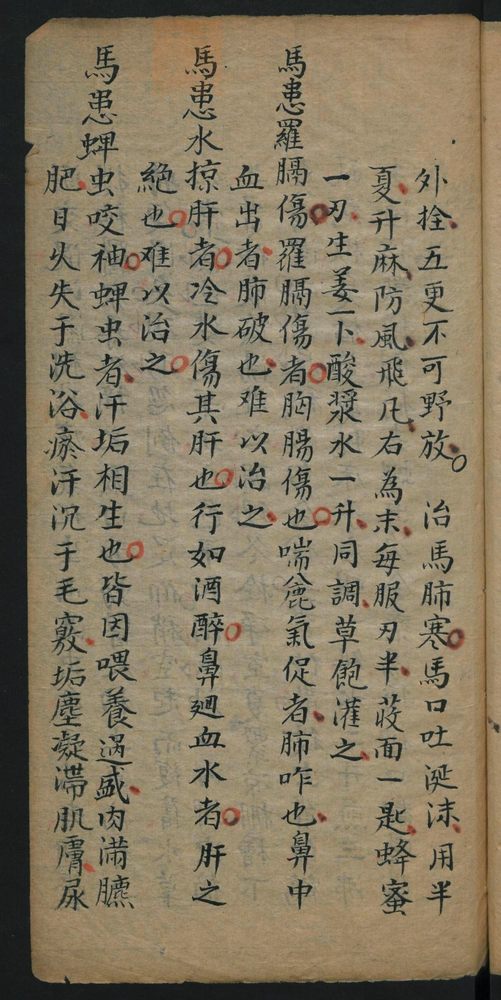 外拴五更不可野放 治馬肺寒馬口吐涎沫用半
夏升麻防風飛凡右為末每服刃半莜面一匙蜂蜜
一刃生姜一卜酸漿水一升同調草飽灌之
馬患羅膈傷羅膈傷者胸腸傷也喘麄氣促者肺咋也鼻中
血出者肺破也难以治之
馬患水掠肝者冷水傷其肝也行如酒醉鼻廻血水者肝之
絶也难以治之
馬患蜱虫咬袖蜱虫者汗垢相生也皆因喂養過盛肉满臕
肥日久失于洗浴瘀汗沉于毛竅垢塵凝滞肌膚尿